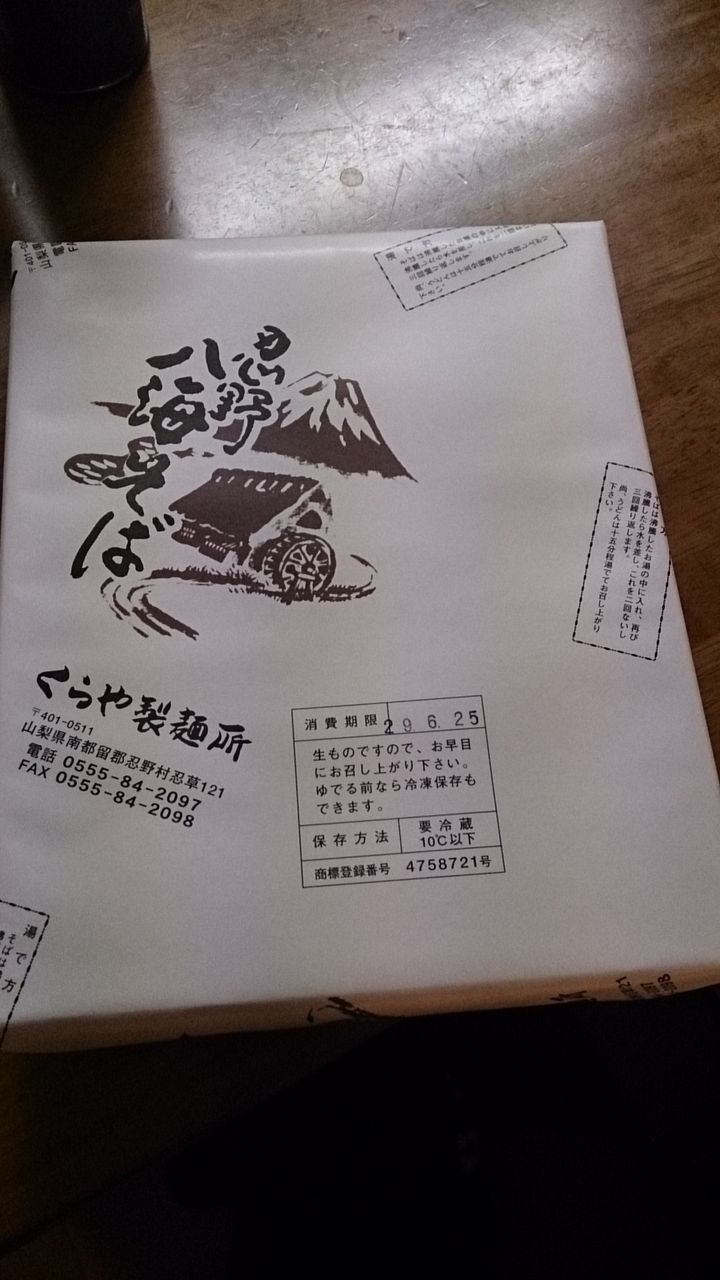 忍野
八海
そば
くらや製麺所
〒401-0511
山梨県南都留郡忍野村忍草121
電話 0555-84-2097
FAX 0555-84-2098
消費期限 29.6.25
生ものですので、お早目
にお召し上がり下さい。
ゆでる前なら冷凍保存も
できます。
保存方法 要冷蔵
10℃以下
商標登録番号 4758721号
沸騰したお湯の中に入れ、再び
沸騰したら水を差し、これを二回ないし
三回繰り返します。
尚、うどんは十五分程湯でてお召し上がり
下さい。
湯で方